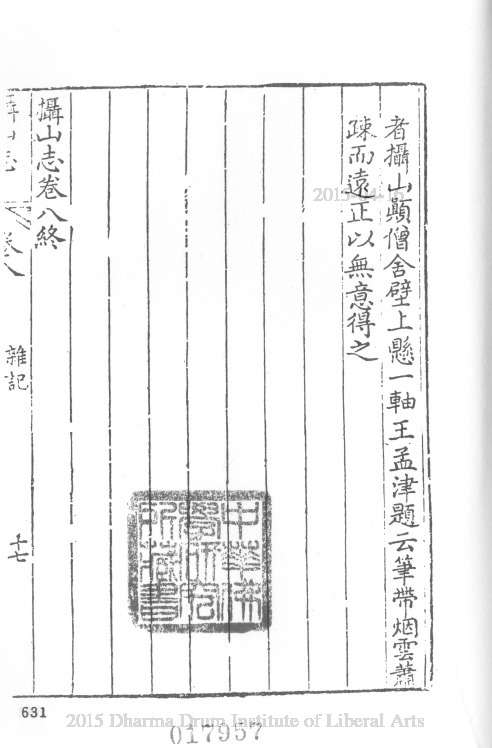 者攝山顛僧舍壁上懸一軸王孟津題云筆帶烟雲蕭
踈而遠正以無意得之
攝山志卷八終
攝山志
卷八
雜記
十七
中華佛
學研究
所藏書
2015-04-16
631
2015 Dharma Drum Institute of Liberal Arts
017957